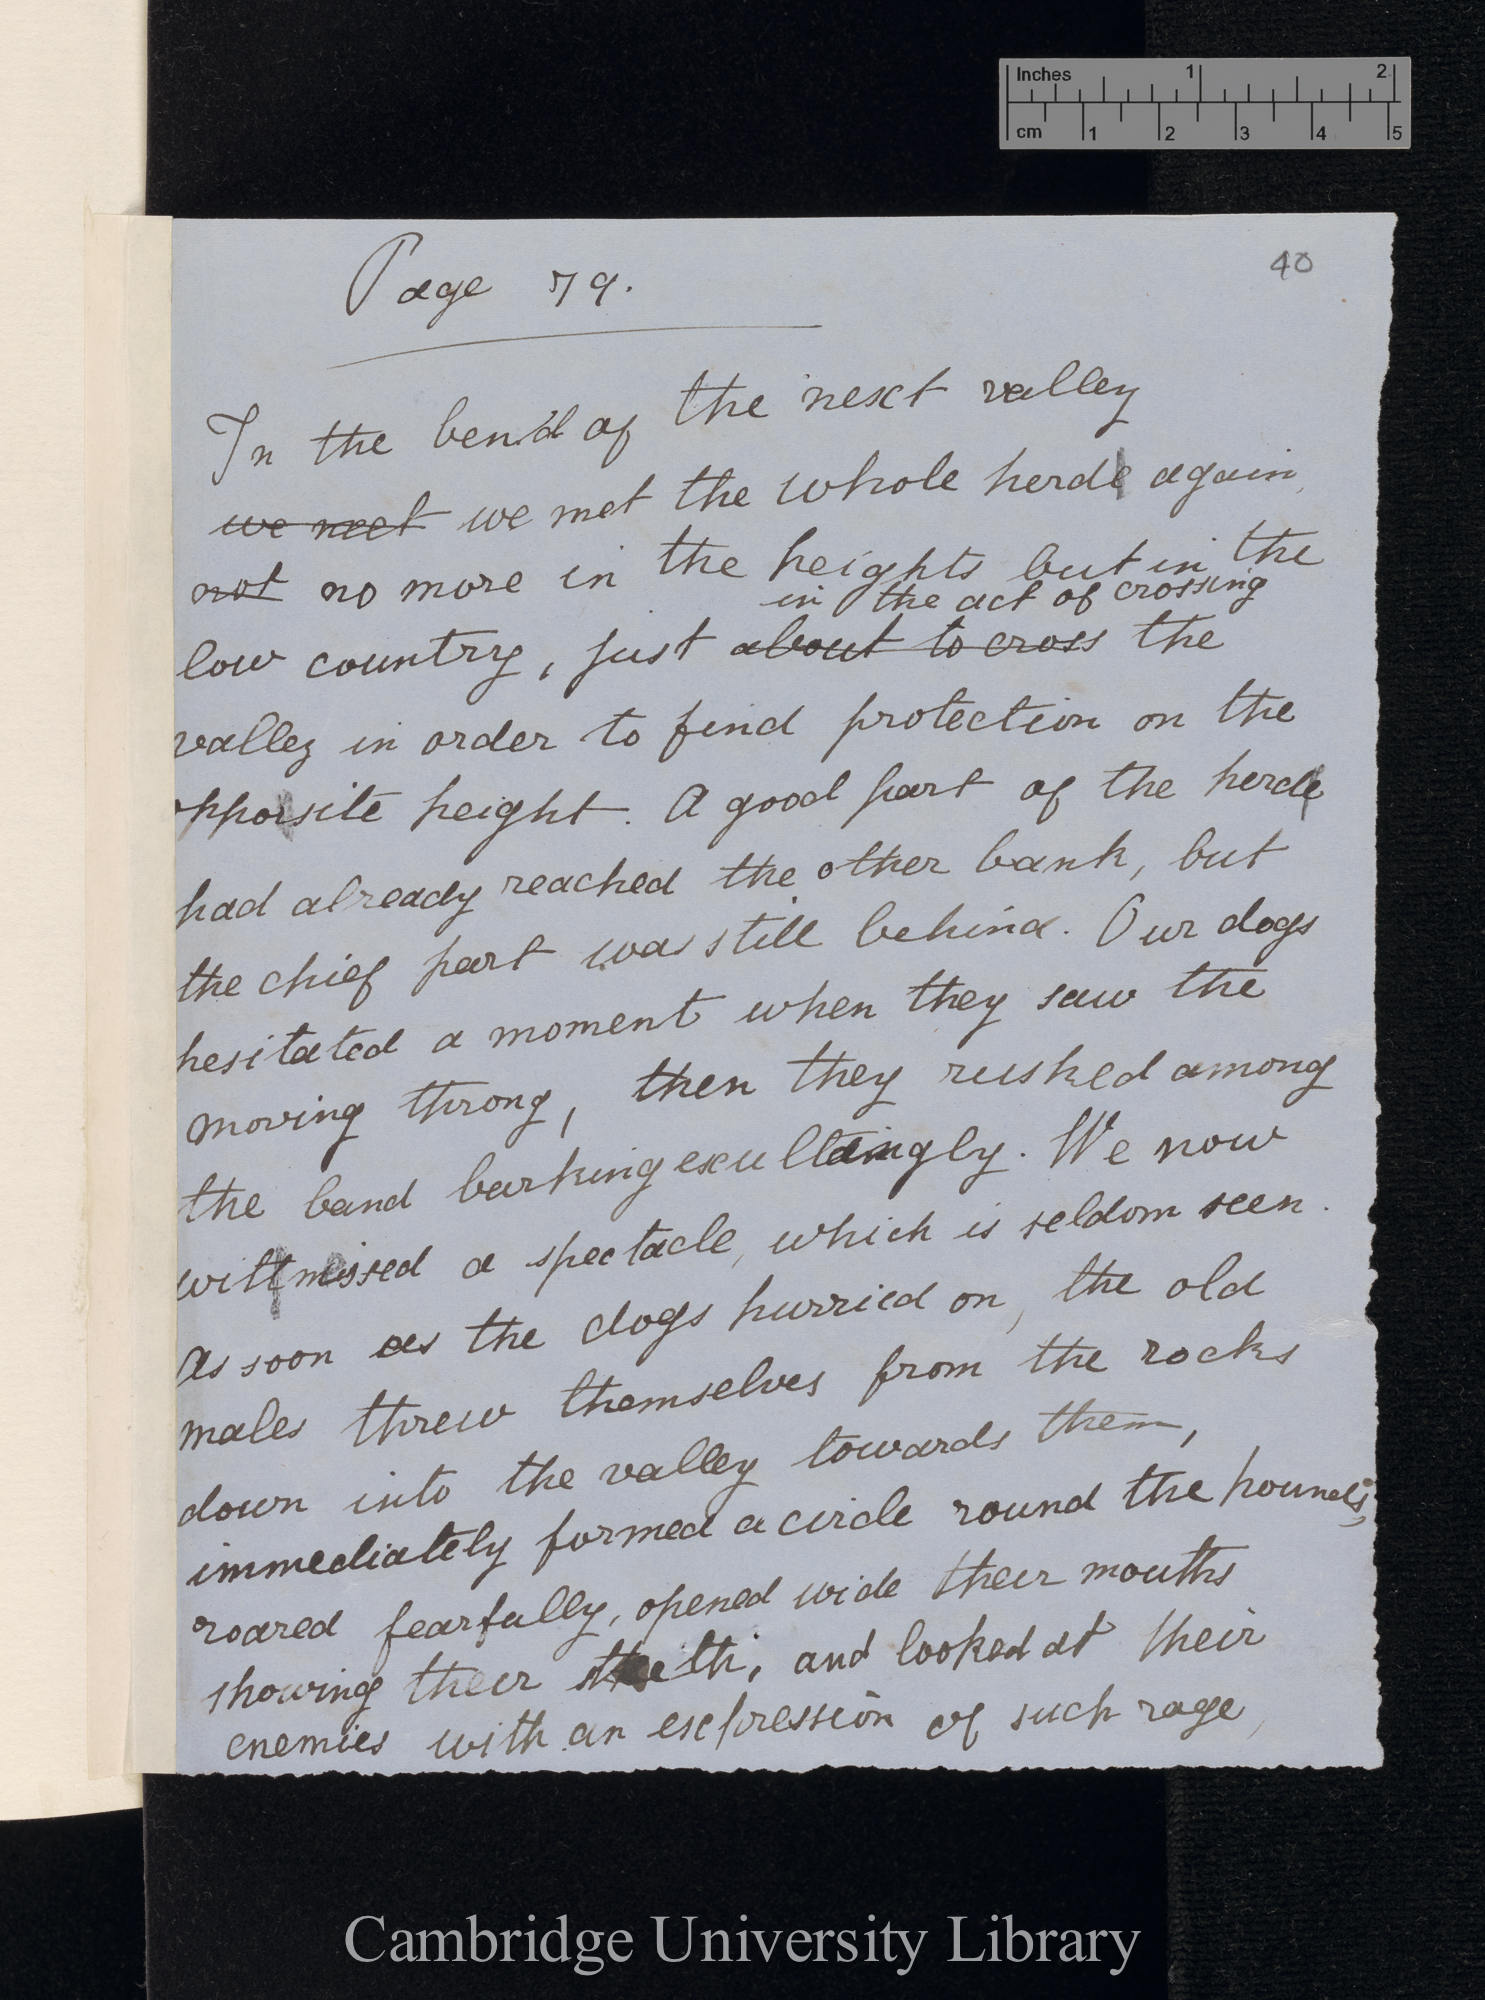 Inches 1 2
cm 1 2 3 4 5
40
Page 79.
In the bend of the next valley
we meet we met the whole herde again,
not no more in the heights but in the
in the act of crossing
low country, just about to cross the
valley in order to find protection on the
opposite height. A good part of the herde
had already reached the other bank, but
the chief part was still behind. Our dogs
hesitated a moment when they saw the
moving throng, then they rushed among
the band barking exultingly. We now
wittnessed a spectacle, which is seldom seen.
As soon as the dogs hurried on, the old
males threw themselves from the rocks
down into the valley towards them,
immediately formed a circle round the hounds;
roared fearfully, opened wide their mouths
showing their teeth, and looked at their
enemies with an expression of such rage,
Cambridge University Library